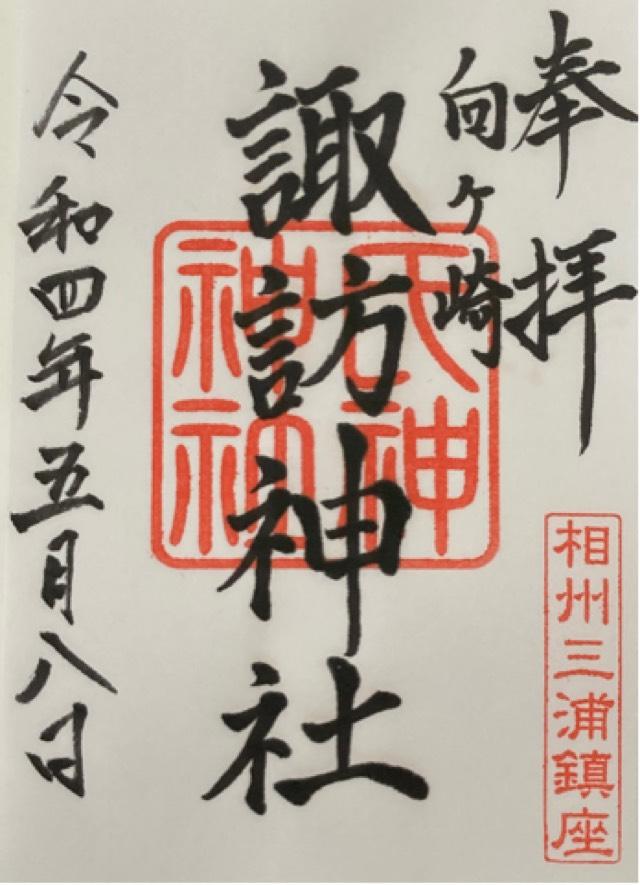 奉拝
向ヶ崎
諏訪神社
令和四年五月八日
天神
神社
相州三浦鎮座